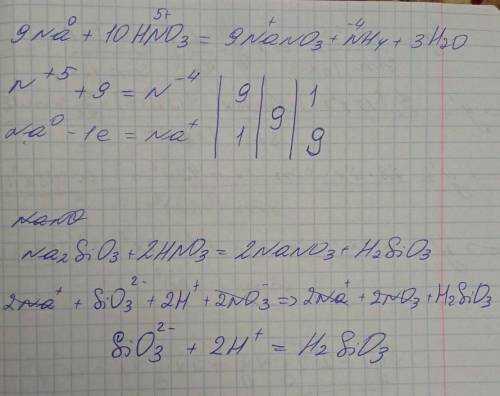 9Na⁰ + 10HN⁵⁺O₃ = 9Na⁺NO₃ + N⁻⁴H₄ + 3H₂O
N⁺⁵ + 9 = N⁻⁴ | 9 | 9 | 1
Na⁰ - 1e = Na⁺ | 1 | | 9
NaNO
Na₂SiO₃ + 2HNO₃ = 2NaNO₃ + H₂SiO₃
2Na⁺ + SiO₃²⁻ + 2H⁺ + 2NO₃⁻ => 2Na⁺ + 2NO₃ + H₂SiO₃
SiO₃²⁻ + 2H⁺ = H₂SiO₃